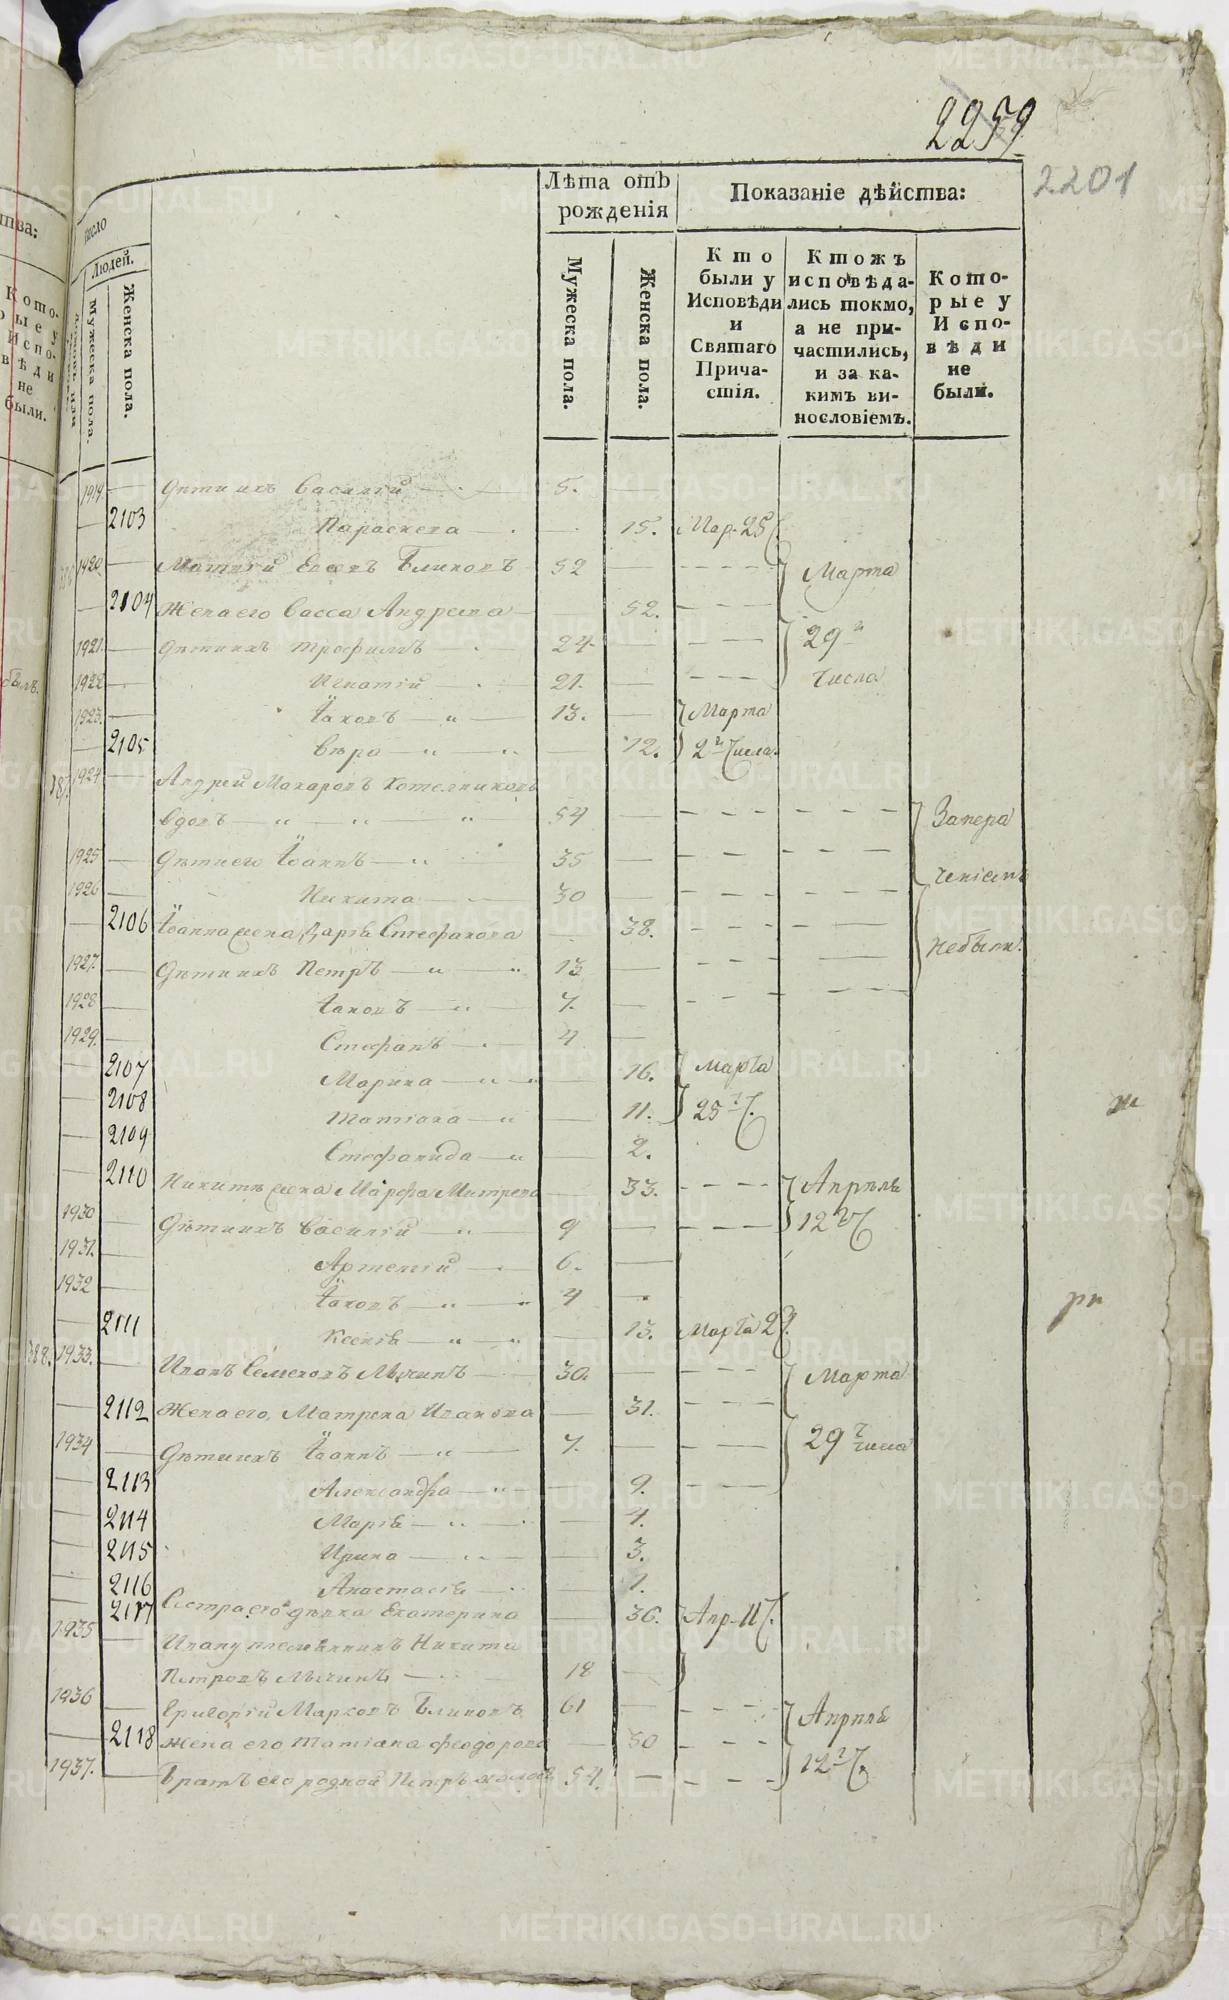 2259
2201
Число
Людей.
Мужеска пола.
Женска пола.
Лѣта отъ рожденія
Мужеска пола.
Женска пола.
Показаніе дѣйства:
Кто были у Исповѣди и Святаго Прича-стія.
Ктожъ исповѣда-лись токмо, а не при-частились, и за ка-кимъ ви-нословіемъ.
Кото-рые у Испо-вѣди не были.
1919 — Дѣти ихъ Василій — 5. —
— 2103 Параскева — 15. Мар. 25 Ч.
1920 — Матвей Блиновъ 52 — Марта
— 2104 Жена его Васса Андреева — 52.
1921. — Дѣти ихъ Трофимъ — 24. — 29 г
1922 — Игнатій — 21. — числа
1923. — Іаковъ — 13. — Марта
— 2105 Вѣра — 12. 2 г числа.
387. 1924 — Андрей Макаровъ Котелниковъ
вдовъ — 54 — Запера
1925 — Дѣти его Іоаннъ — 35 —
1926 — Никита — 30 —
— 2106 Іоанна жена Дарія Стефанова — 38. небыли.
1927. — Дѣти ихъ Петръ — 13 —
1928 — Іаковъ — 7. —
1929. — Стефанъ — 4 —
— 2107 Марина — 16. Марта
— 2108 Татіана — 11. 25 г Ч.
— 2109 Стефанида — 2.
— 2110 Никиты жена Марфа Митрева — 33. Апрѣля
1930 — Дѣти ихъ Василій — 9 — 12 г Ч
1931. — Артемій — 6. —
1932 — Іаковъ — 4 —
— 2111 Ксенія — 13. Марта 2 Ч.
388. 1933. — Иванъ Семеновъ Мычинъ — 30. — Марта
— 2112 Жена его, Матрена Иванова — 31.
1934 — Дѣти ихъ Іоаннъ — 7. — 29 г числа
— 2113 Александра — 9.
— 2114 Марія — 4.
— 2115 Ирина — 3.
— 2116 Анастасія — 1.
2117 Сестра его дѣвка Екатерина — 36. Апр. 11 Ч.
1935 — Ивану племянникъ Никита
Петровъ Мычинъ — 18 —
1936 — Григорій Марковъ Блиновъ 61 — Апрѣля
— 2118 Жена его Татіана Феодорова — 50 12 г Ч.
1937. — Братъ его родной Петръ 54. —
METRIKI.GASO-URAL.RU